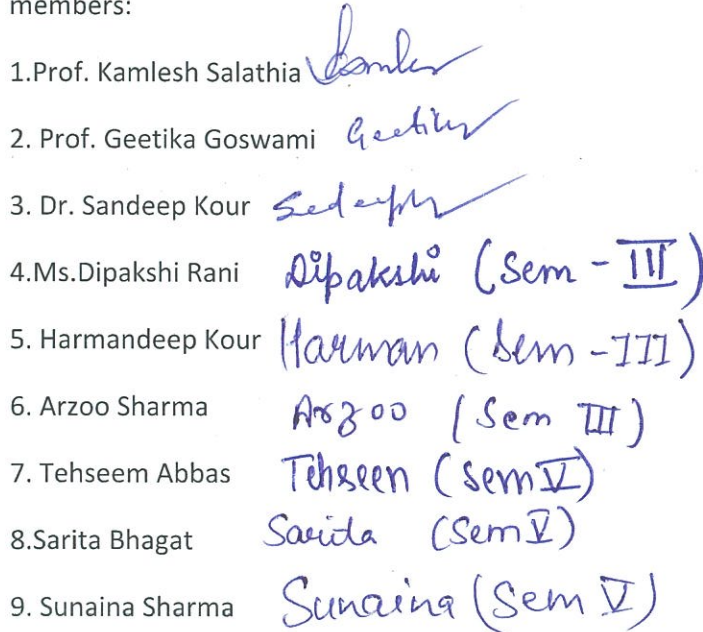 members:
1.Prof. Kamlesh Salathia Kamlesh
2. Prof. Geetika Goswami Geetika
3. Dr. Sandeep Kour
4.Ms.Dipakshi Rani Dipakshi (Sem - III)
5. Harmandeep Kour Harman (Sem -III)
6. Arzoo Sharma Arzoo (Sem III)
7. Tehseem Abbas Tehseen (Sem V)
8.Sarita Bhagat Sarita (Sem V)
9. Sunaina Sharma Sunaina (Sem V)